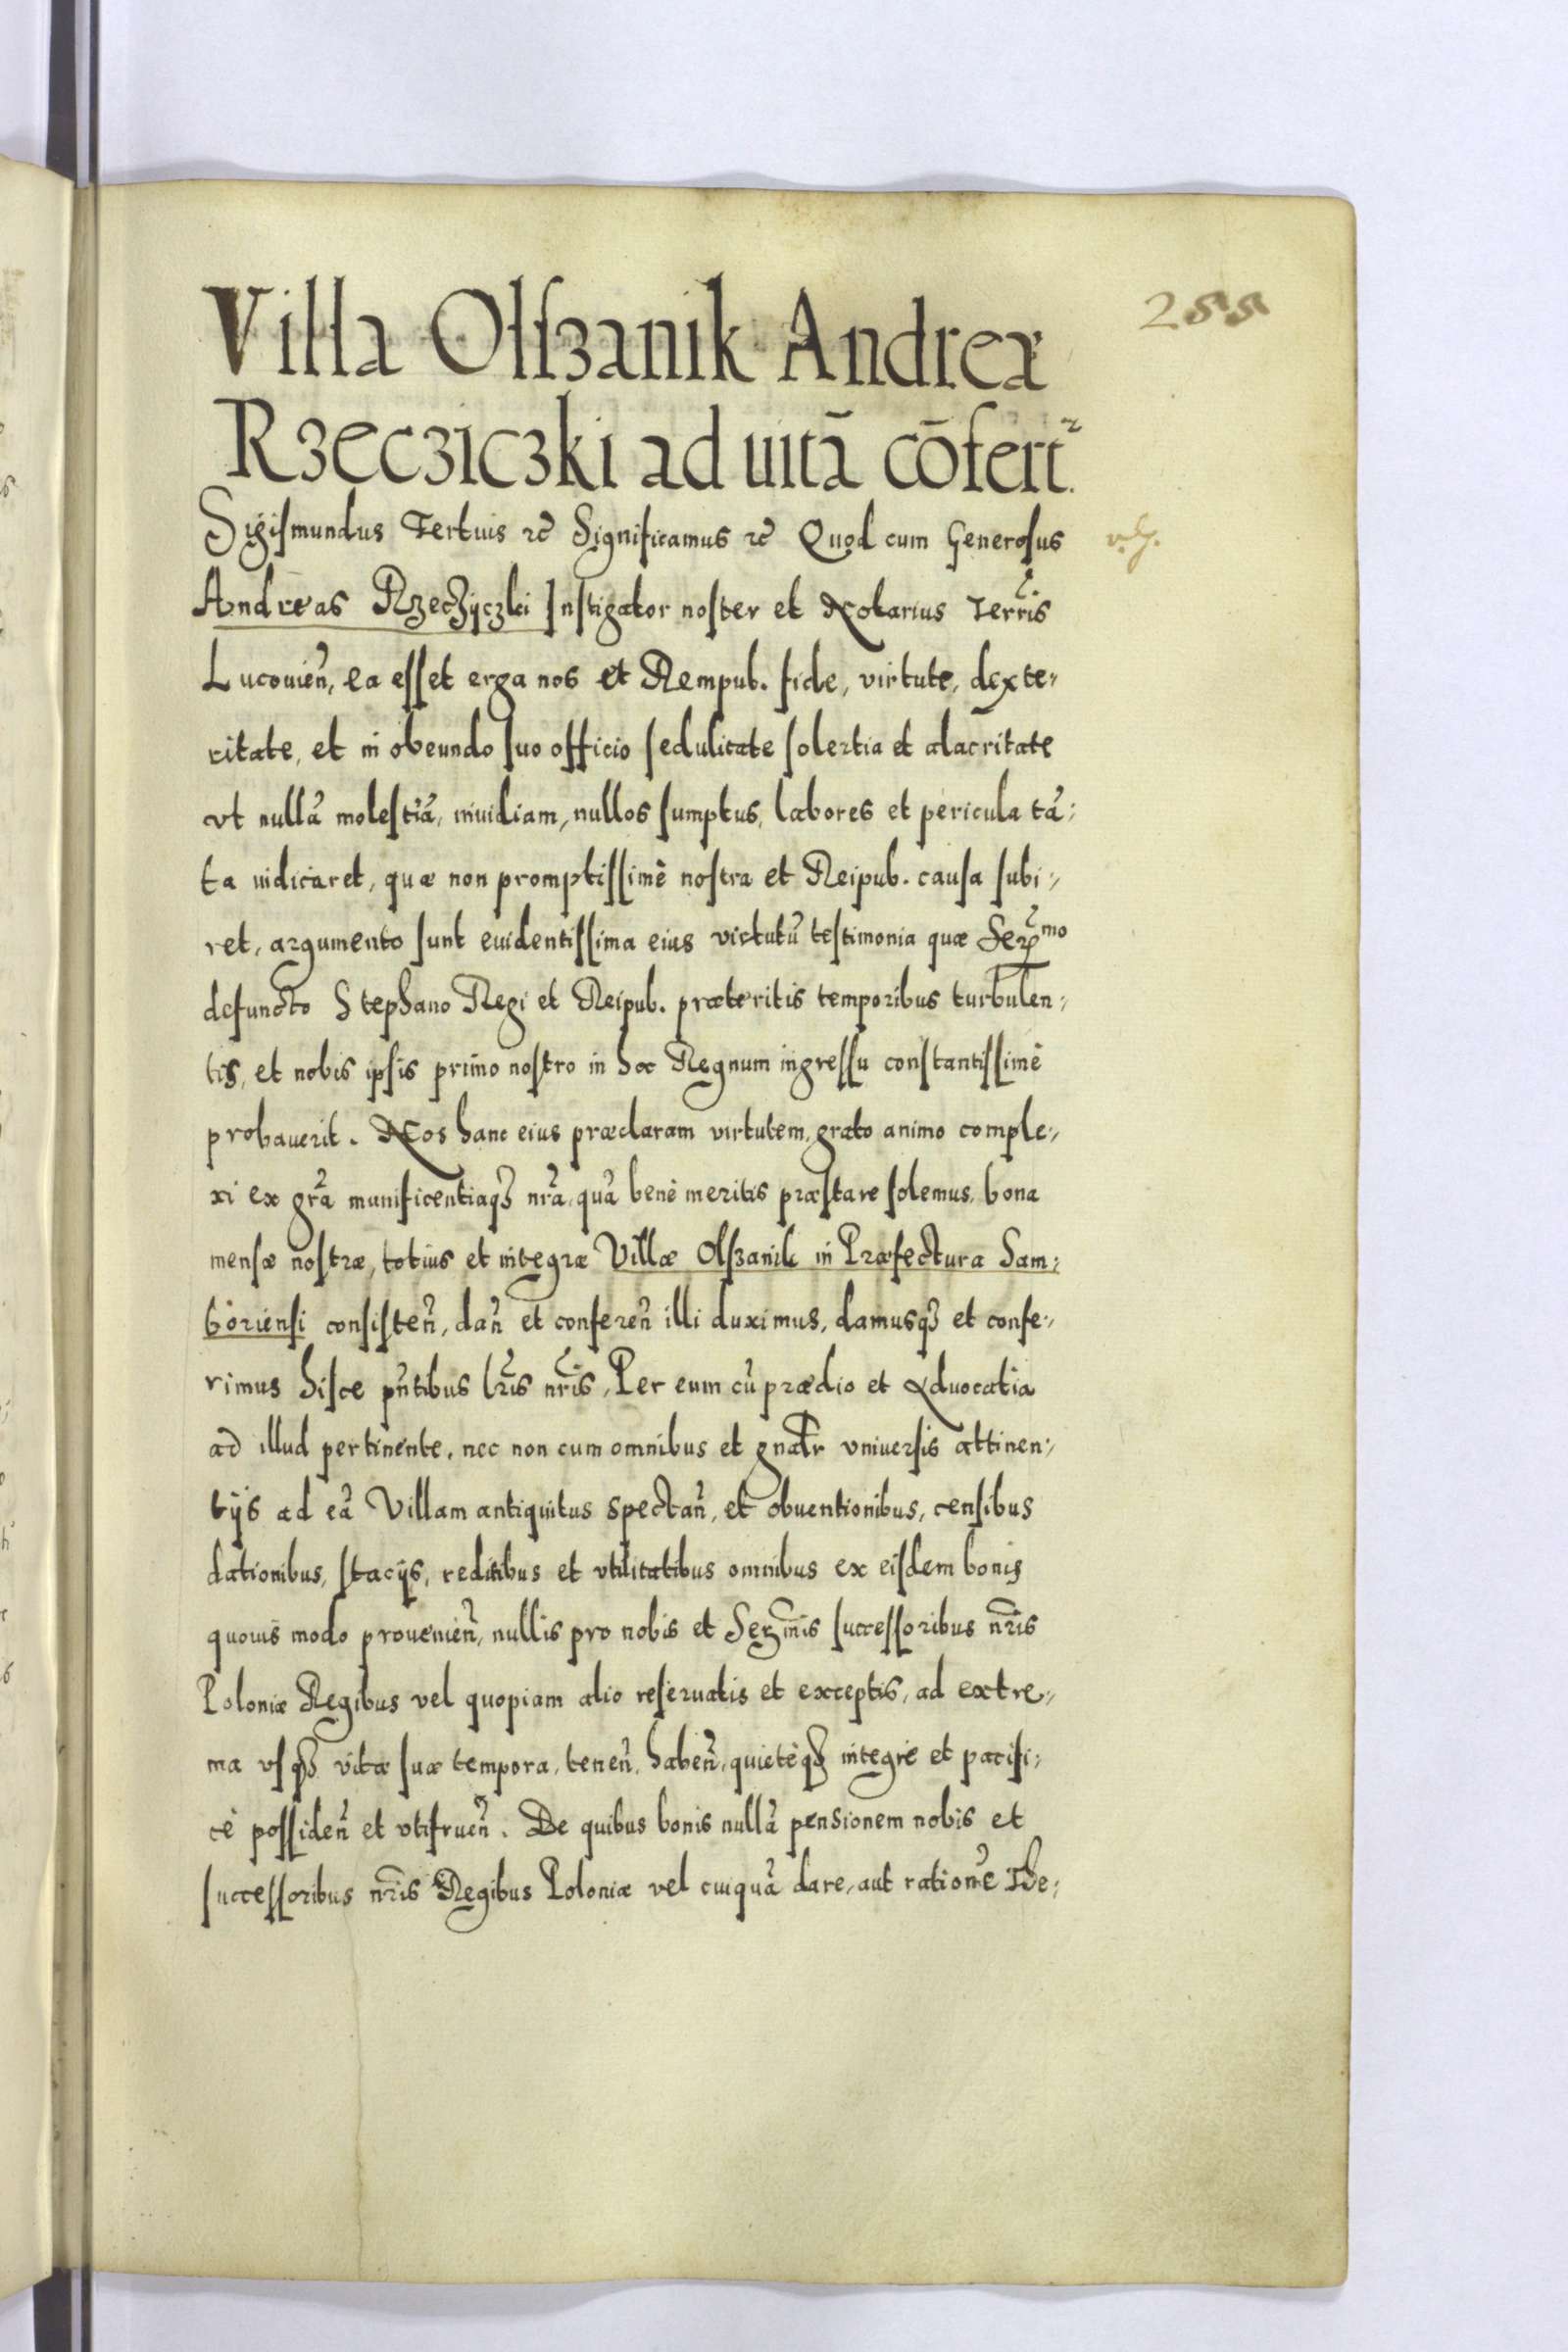 288
Villa Olſzanik Andreæ
Rzecziczki ad uitā cōfert².
Sigiſmundus Tertuis ꝛc̃ Significamus ꝛc̃ Quod cum Generoſus
Andreas Rzeczÿczki Inſtigator noſter et Notarius Terr̃is
Lucouieñ, ea eſſet erga nos et Rempub. fide, virtute, dexte,,
ritate, et in obeundo ſuo officio ſedulitate ſolertia et alacritate
vt nullã moleſtiã, inuidiam, nullos ſumptus, labores et pericula tã:
ta iudicaret, quæ non promptiſſimè noſtra et Reipub. cauſa ſubi,,
ret, argumento ſunt euidentiſſima eius virtutũ teſtimonia quæ Serᵐᵒ
defuncto Stephano Regi et Reipub. præteritis temporibus turbulen,,
tis, et nobis ipſis primo noſtro in hoc Regnum ingreſſu conſtantiſſimè
probauerit. Nos hanc eius præclaram virtutem, grato animo comple,,
xi ex gr̃a munificentiaqꝫ nr̃a, quã benè meritis præſtare ſolemus, bona
menſæ noſtræ, totius et integræ Villæ Olſzanik in Præfectura Sam:
borienſi conſiſteñ, dañ et confereñ illi duximus, damusqꝫ et confe,,
rimus hiſce pñtibus lr̃is nr̃is, Per eum cũ prædio et Aduocatia
ad illud pertinente, nec non cum omnibus et gnalr̃ vniuerſis attinen,,
tÿs ad eã Villam antiquitus spectañ, et obuentionibus, cenſibus
dationibus, ſtacÿs, reditibus et vtilitatibus omnibus ex eiſdem bonis
quouis modo prouenieñ, nullis pro nobis et Sermis̃ ſucceſſoribus nr̃is
Poloniæ Regibus vel quopiam alio reſeruatis et exceptis, ad extre,,
ma vſqꝫ vitæ ſuæ tempora, teneñ, habeñ, quietèqꝫ integrè et pacifi:
cè poſſideñ et vtifrueñ. De quibus bonis nullã penſionem nobis et
ſucceſſoribus nr̃is Regibus Poloniæ vel cuiquã dare, aut rationẽ The: